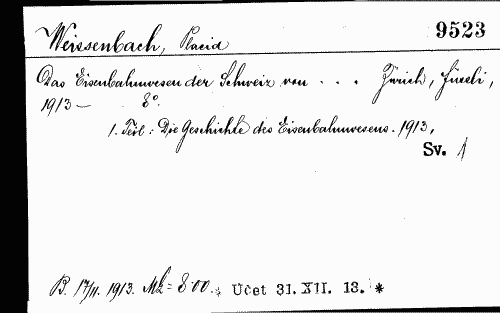 9523
Weissenbach, Placid
Das Eisenbahnwesen der Schweiz von . . . Zürich, Füssli,
1913— 8°.
1. Teil : Die Geschichte des Eisenbahnwesens. 1913,
Sv. 1
B. 17/11. 1913. Mk = 8·00. Účet 31. XII. 13. *